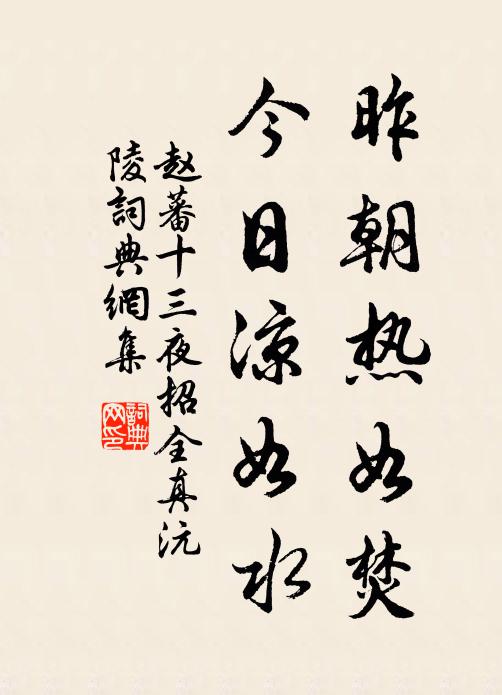 昨朝热如焚
今日涼如水
赵蕃十三夜招全真沅
陵詞典網集
詞典网印